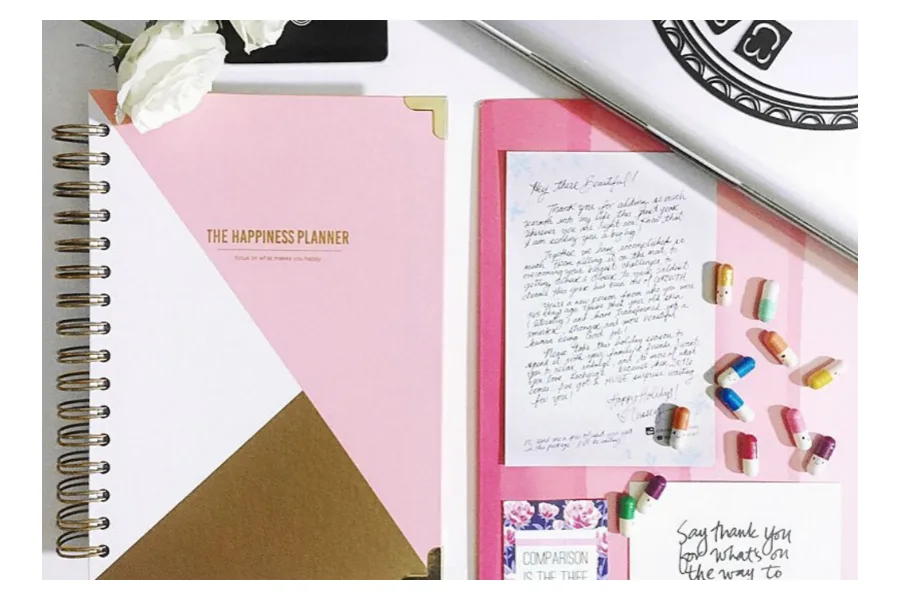 THE HAPPINESS PLANNER
focus on what makes you happy
Hey there Beautiful!
Thank you for adding so much
warmth into my life this past year.
Wherever you are right now know that
I am sending you a big hug!
Together we have accomplished so
much. From getting in on the mat, to
overcoming your biggest challenges to
getting closer & closer to your wildest
dreams this year has been one of GROWTH.
You're a new person from who you were
ago. You've shed your old skin
(literally) and have transformed into a
smarter, stronger, and more beautiful
human being. Good job!
Please take this holiday season to
spend it with your family & friends. I want
you to relax, indulge, and do more of what
you love
comes I've got a surprise waiting
for you!
Happy Holidays!
COMPARISON
IS THE THIEF
Say thank you
for what's on
the way to